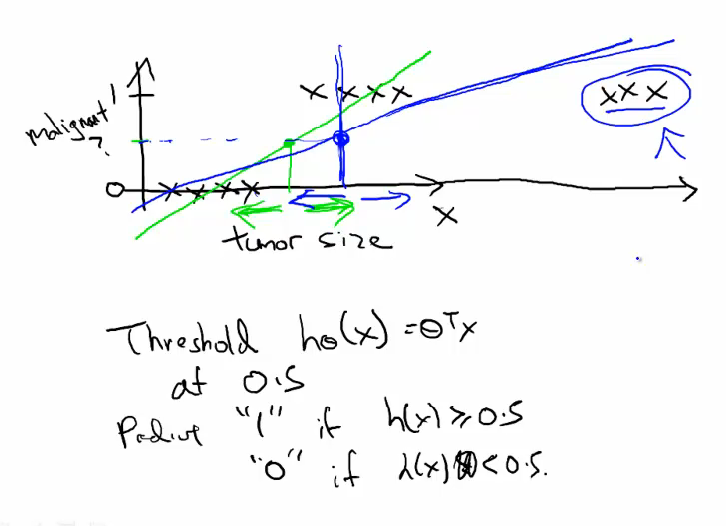 1
malignant
?
0
x x x x
x x x
x x x x
x
tumor size
Threshold hθ(x) = θᵀx
at 0.5
Predict "1" if h(x) ≥ 0.5
"0" if h(x) < 0.5.